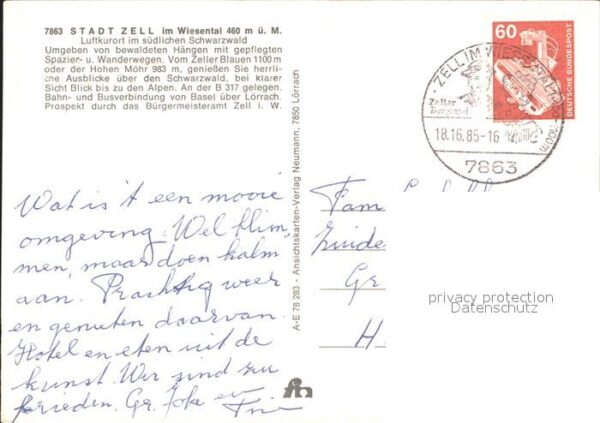 7863 STADT ZELL im Wiesental 460 m ü. M.
Luftkurort im südlichen Schwarzwald
Umgeben von bewaldeten Hängen mit gepflegten
Spazier- u. Wanderwegen. Vom Zeller Blauen 1100 m
oder der Hohen Möhr 983 m, genießen Sie herrli-
che Ausblicke über den Schwarzwald, bei klarer
Sicht Blick bis zu den Alpen. An der B 317 gelegen.
Bahn- und Busverbindung von Basel über Lörrach.
Prospekt durch das Bürgermeisteramt Zell i. W.
A-E 78 283 - Ansichtskarten-Verlag Neumann, 7850 Lörrach
60
DEUTSCHE BUNDESPOST
ZELL IM
Zeller
-16
7863
Wat is 't een mooie
omgeving. Wel klim,
men, maar doen kalm
aan. Prachtig weer
en genieten daarvan.
Hotel en eten uit de
kunst. Wij zijn zu
frieden. Gr. Joke en
Fam
Gr
H
privacy protection
Datenschutz